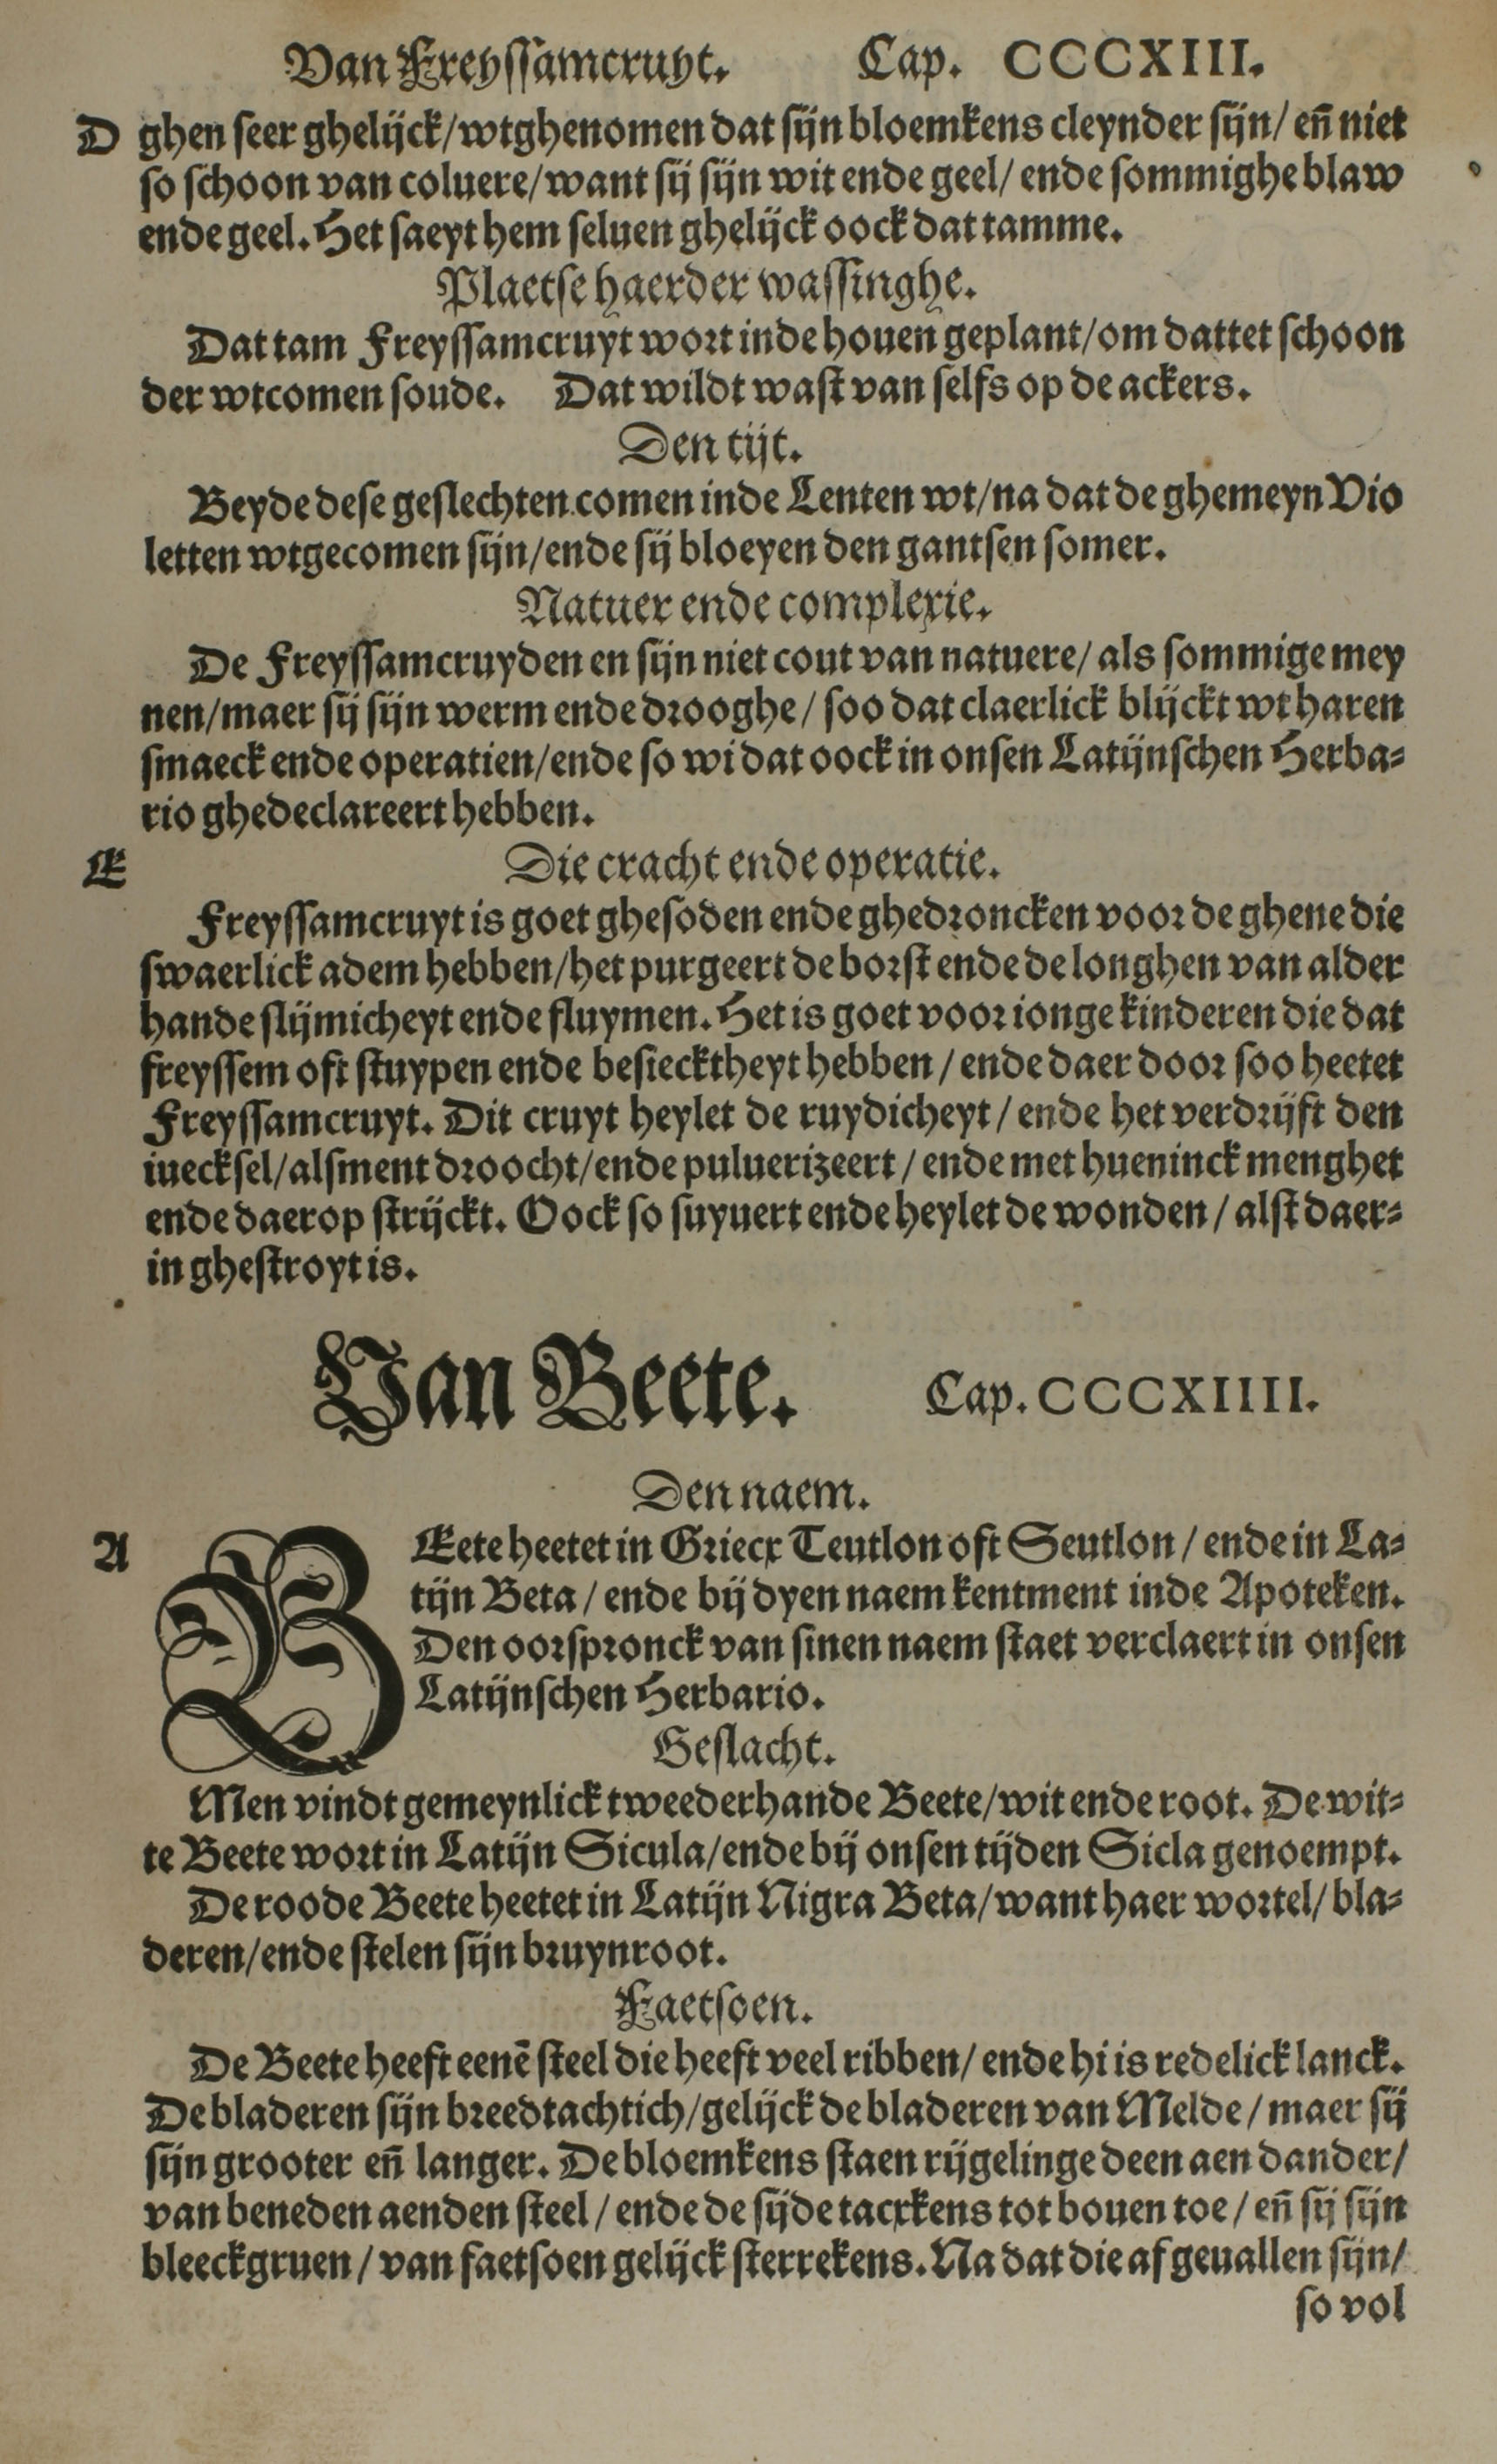 Van Freyssamcruyt. Cap. CCCXIII.
D ghen seer ghelijck/wtghenomen dat sijn bloemkens cleynder sijn/ en̄ niet
so schoon van coluere/want sij sijn wit ende geel/ ende sommighe blaw
ende geel. Het saeyt hem seluen ghelijck oock dat tamme.
Plaetse haerder wassinghe.
Dat tam Freyssamcruyt wort inde houen geplant/om dattet schoon
der wtcomen soude. Dat wildt wast van selfs op de ackers.
Den tijt.
Beyde dese geslechten comen inde Lenten wt/na dat de ghemeyn Vio
letten wtgecomen sijn/ende sij bloeyen den gantsen somer.
Natuer ende complexie.
De Freyssamcruyden en sijn niet cout van natuere/ als sommige mey
nen/maer sij sijn werm ende drooghe/ soo dat claerlick blijckt wt haren
smaeck ende operatien/ende so wi dat oock in onsen Latijnschen Herba-
rio ghedeclareert hebben.
E Die cracht ende operatie.
Freyssamcruyt is goet ghesoden ende ghedroncken voor de ghene die
swaerlick adem hebben/het purgeert de borst ende de longhen van alder
hande slijmicheyt ende fluymen. Het is goet voor ionge kinderen die dat
freyssem oft stuypen ende besiecktheyt hebben / ende daer door soo heetet
Freyssamcruyt. Dit cruyt heylet de ruydicheyt / ende het verdrijft den
iuecksel/alsment droocht/ende puluerizeert / ende met hueninck menghet
ende daerop strijckt. Oock so suyuert ende heylet de wonden / alst daer-
in ghestroyt is.
Van Beete. Cap. CCCXIIII.
Den naem.
A BEete heetet in Griecx Teutlon oft Seutlon / ende in La-
tijn Beta / ende bij dyen naem kentment inde Apoteken.
Den oorspronck van sinen naem staet verclaert in onsen
Latijnschen Herbario.
Geslacht.
Men vindt gemeynlick tweederhande Beete/wit ende root. De wit-
te Beete wort in Latijn Sicula/ende bij onsen tijden Sicla genoempt.
De roode Beete heetet in Latijn Nigra Beta/want haer wortel/ bla-
deren/ende stelen sijn bruynroot.
Faetsoen.
De Beete heeft eenē steel die heeft veel ribben/ ende hi is redelick lanck.
De bladeren sijn breedtachtich/gelijck de bladeren van Melde / maer sij
sijn grooter en̄ langer. De bloemkens staen rijgelinge deen aen dander/
van beneden aenden steel / ende de sijde tacxkens tot bouen toe / en̄ sij sijn
bleeckgruen / van faetsoen gelijck sterrekens. Na dat die af geuallen sijn/
so vol